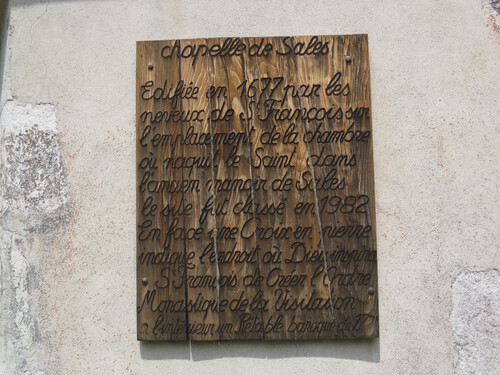 chapelle de Sales
Edifiée en 1677 par les
neveux de St François sur
l'emplacement de la chambre
où naquit le Saint dans
l'ancien manoir de Sales
le site fut classé en 1982
En face une Croix en pierre
indique l'endroit où Dieu inspira
S François de Créer l'Ordre
Monastique de la Visitation
à l'intérieur un Rétable baroque du